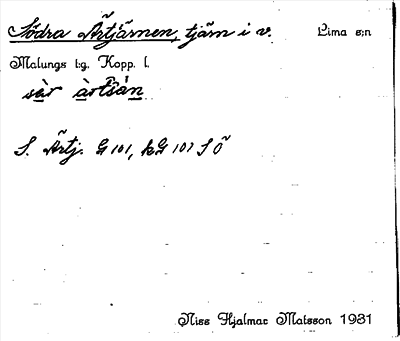 Södra Ärtjärnen, tjärn i v. Lima s:n
Malungs t:g. Kopp. l.
sä̀r ä̀rtšän
S. Ärtj. G 101, kG 107 S Ö
Niss Hjalmar Matsson 1931